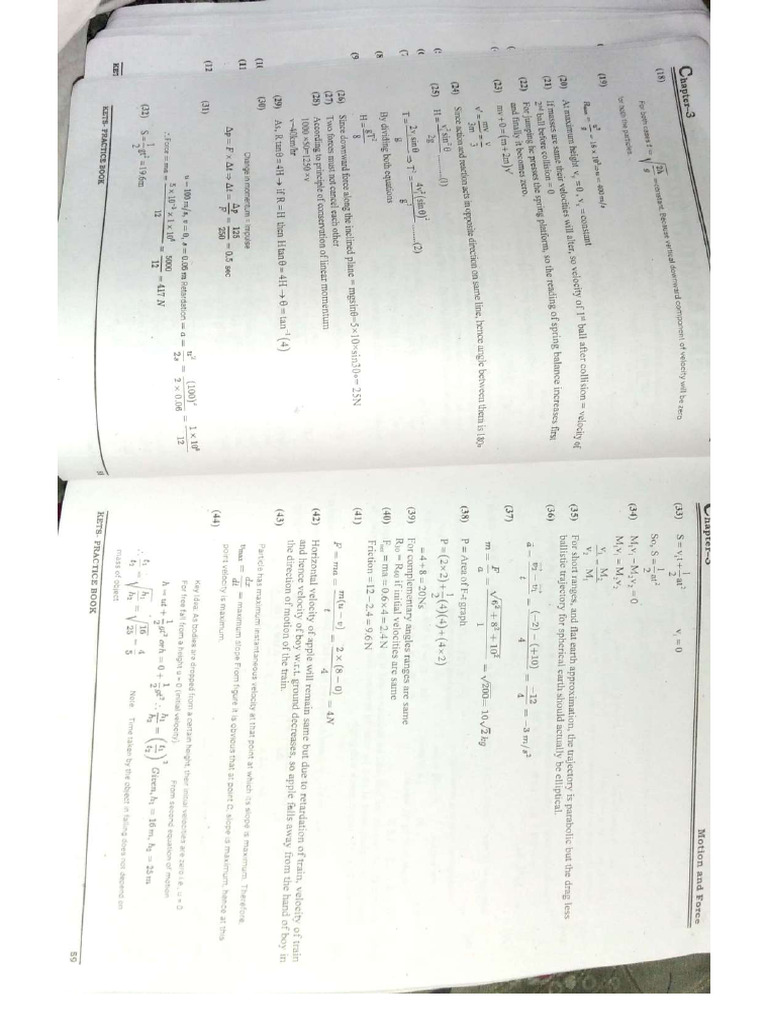 Chapter-3
(18)
For both cases t = √(2h/g) =constant. Because vertical downward component of velocity will be zero
for both the particles.
(19)
(20) At maximum height vᵧ = 0, vₓ = constant
(21) If masses are same their velocities will alter, so velocity of 1st ball after collision = velocity of
2nd ball before collision = 0
(22) For jumping he presses the spring platform, so the reading of spring balance increases first
and finally it becomes zero.
(23) mv + 0 = (m + 2m)V
v' = mv/3m = v/3
(24) Since action and reaction acts in opposite direction on same line, hence angle between them is 180
(25) H = v₀²sin²θ/2g ......(1)
T = 2v₀sinθ/g ⇒ T² = 4v₀²(sinθ)²/g² .......(2)
By dividing both equations
H = gT²/8
(26) Since downward force along the inclined plane = mgsinθ=5×10×sin30°= 25N
(27) Two forces must not cancel each other
(28) According to principle of conservation of linear momentum
1000 ×50=1250 ×v
v=40km/hr
(29) As, R tanθ = 4H → if R = H then H tanθ = 4H → θ = tan⁻¹(4)
(30)
Change in momentum = Impulse
Δp = F × Δt → Δt = Δp/F = 125/250 = 0.5 sec
(31)
u = 100 m/s, v = 0, s = 0.06 m Retardation = a = u²/2s = (100)²/(2 × 0.06) = 1 × 10⁶/12
∴ Force = ma = (5 × 10⁻³ × 1 × 10⁶)/12 = 5000/12 = 417 N
(32) S = ½gt² = 19.6m
KETS- PRACTICE BOOK
Chapter-3
Motion and Force
(33) S = vᵢt + ½at² vᵢ = 0
So, S = ½at²
(34) M₁v₁ − M₂v₂ = 0
M₁v₁ = M₂v₂
v₁/v₂ = M₂/M₁
(35) For short ranges, and flat earth approximation, the trajectory is parabolic but the drag less
ballistic trajectory for spherical earth should actually be elliptical.
(36)
a = (v₂ − v₁)/t = ((−2) − (+10))/4 = −12/4 = −3 m/s²
(37)
m = F/a = √(6² + 8² + 10²)/1 = √200 = 10√2 kg
(38) P = Area of F-t graph
P = (2×2) + ½(4)(4) + (4×2)
= 4 + 8 = 20Ns
(39) For complementary angles ranges are same
R₃₀ = R₆₀ if initial velocities are same
(40) = ma = 0.6 × 4 = 2.4 N
Friction = 12 − 2.4 = 9.6 N
(41)
F = ma = m(u − v)/t = 2 × (8 − 0)/4 = 4N
(42) Horizontal velocity of apple will remain same but due to retardation of train, velocity of train
and hence velocity of boy w.r.t. ground decreases, so apple falls away from the hand of boy in
the direction of motion of the train.
(43)
Particle has maximum instantaneous velocity at that point at which its slope is maximum. Therefore,
vmax = dx/dt = maximum slope From figure it is obvious that at point C, slope is maximum, hence at this
point velocity is maximum.
(44)
Key Idea: As bodies are dropped from a certain height, their initial velocities are zero i.e., u = 0
For free fall from a height u = 0 (initial velocity). From second equation of motion
h = ut + ½gt² or h = 0 + ½gt² ∴ h₁/h₂ = (t₁/t₂)² Given, h₁ = 16 m, h₂ = 25 m
∴ t₁/t₂ = √(h₁/h₂) = √(16/25) = 4/5 Note: Time taken by the object in falling does not depend on
mass of object
KETS- PRACTICE BOOK
59